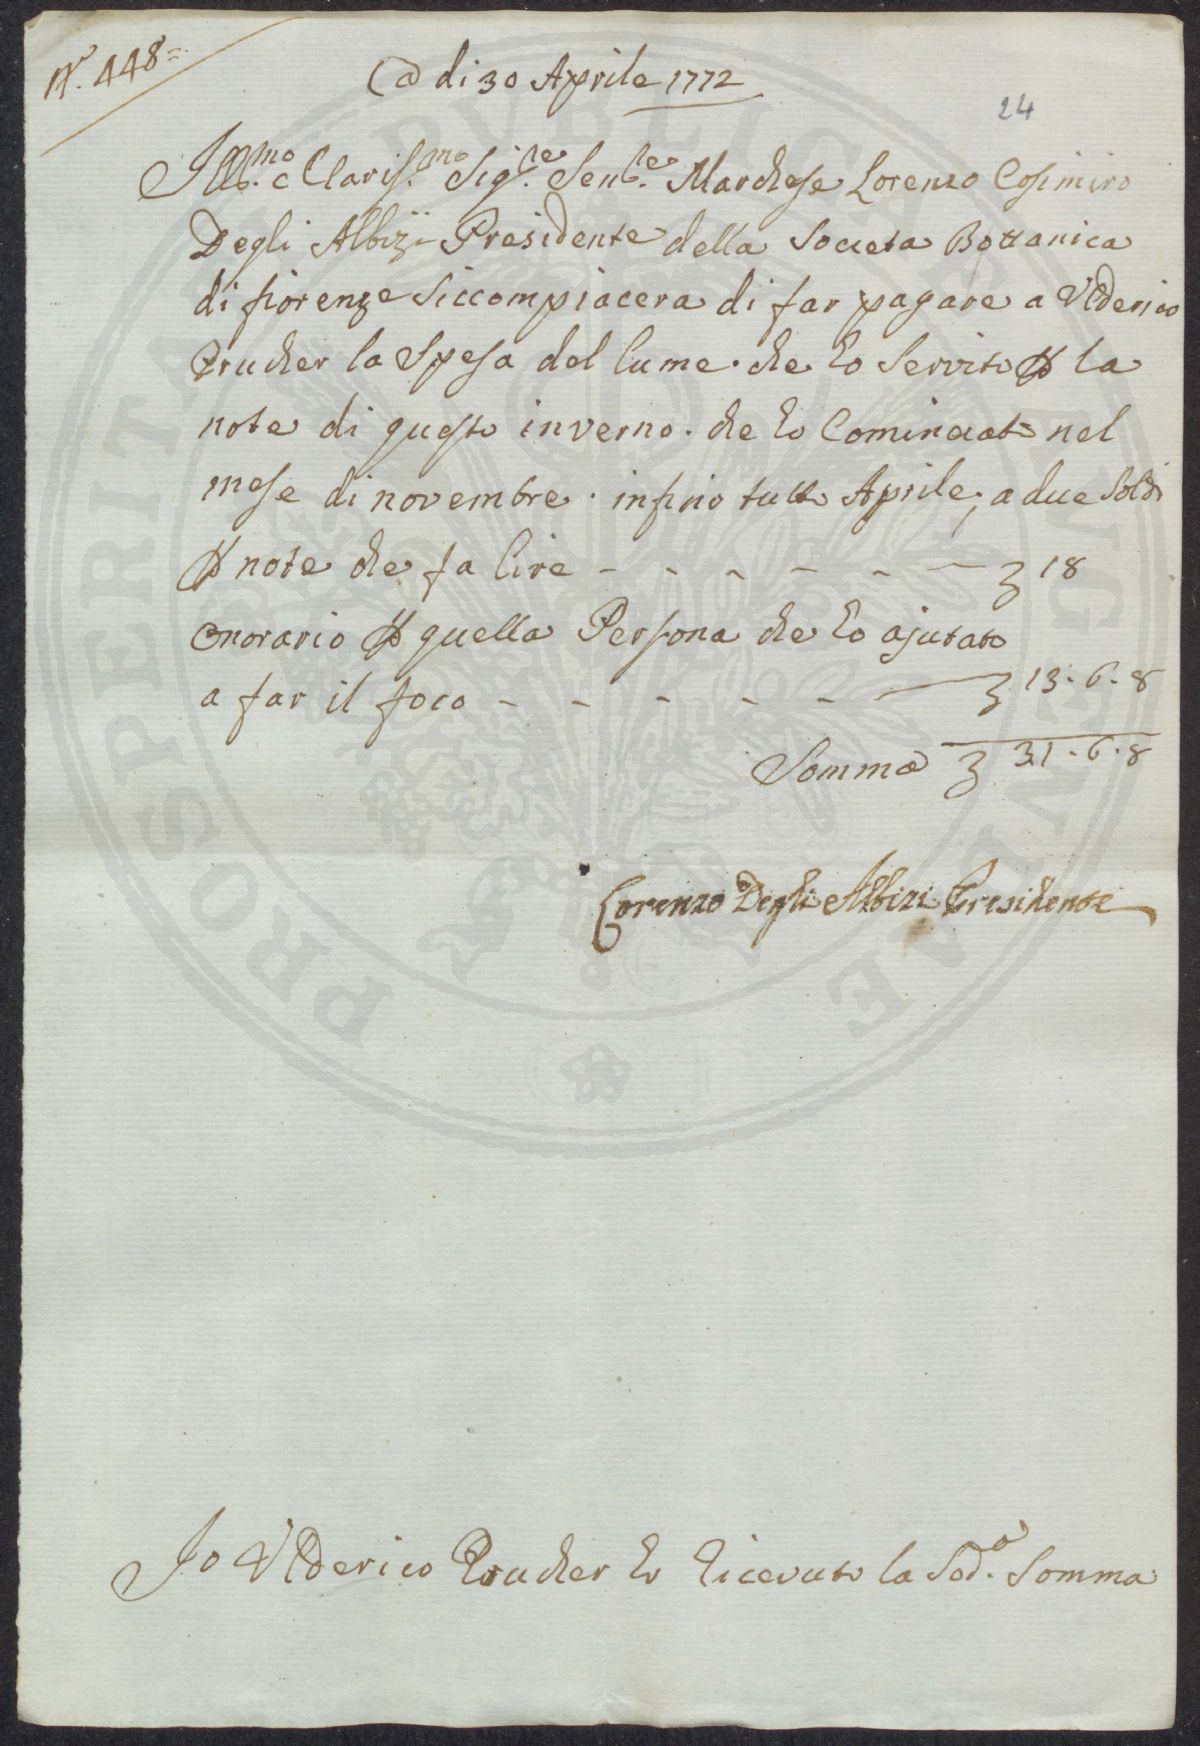 N.º 448=
Adi 30 Aprile 1772
24
Ill.mo e Claris.mo Sig.re Sen.re Marchese Lorenzo Cosimiro
Degli Albizi Presidente della Societa Bottanica
di fiorenze Siccompiacera di far pagare a Vlderico
Prucher la Spesa del lume. che ho Servito p la
note di questo inverno. che ho Cominciato nel
mese di novembre. infino tutto Aprile, a due Soldi
p note che fa lire - - - - - - 18
Onorario p quella Persona che ho ajutato
a far il foco - - - - - - 13.6.8
Somma 31.6.8
Lorenzo Degli Albizi Presidente
Io Vlderico Prucher ho Ricevuto la Sod.a Somma
PROSPERITATI PUBLICAE AUGENDAE